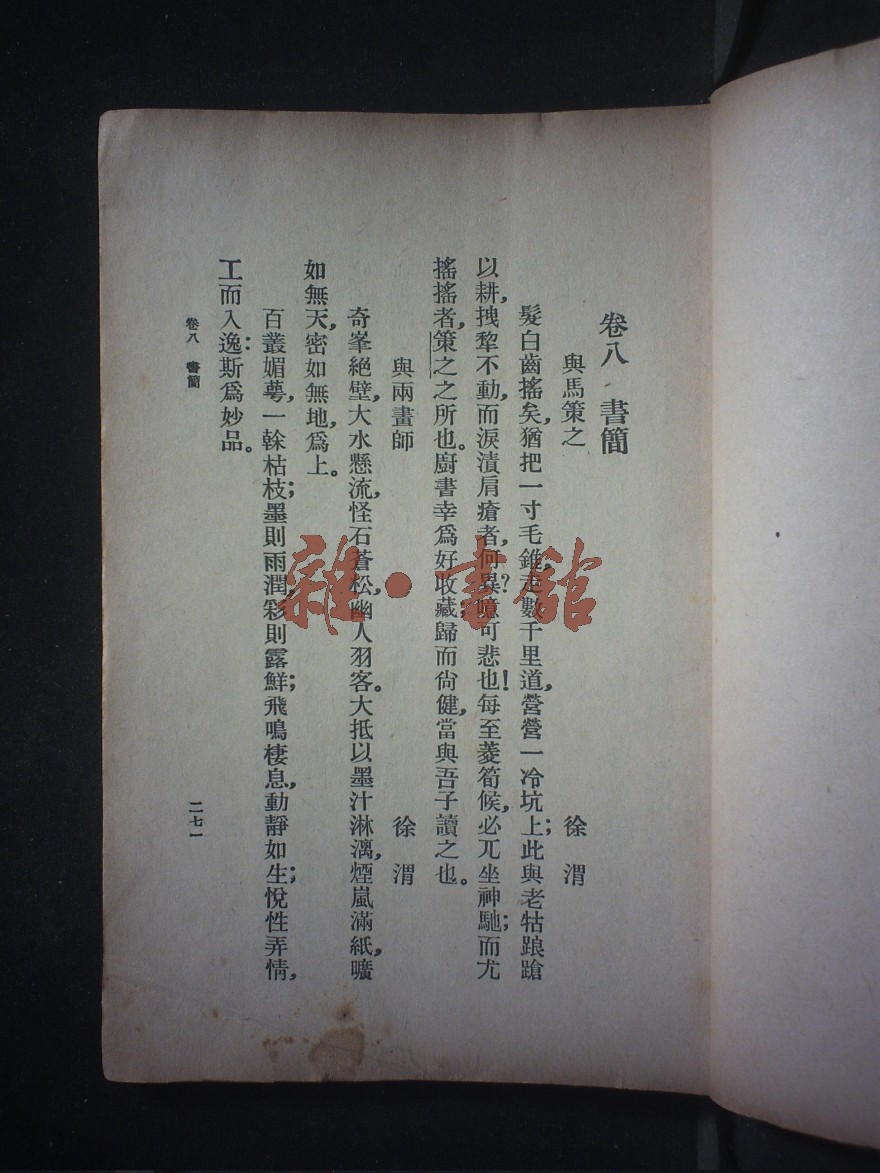 卷八　書簡
與馬策之　徐渭
髮白齒搖矣，猶把一寸毛錐，走數千里道，營營一冷坑上；此與老牯踉蹌
以耕，拽犂不動，而淚漬肩瘡者，何異？噫！可悲也！每至菱筍候，必兀坐神馳；而尤
搖搖者，策之之所也。廚書幸爲好收藏，歸而尙健，當與吾子讀之也。
與兩畫師　徐渭
奇峯絕壁，大水懸流，怪石蒼松，幽人羽客。大抵以墨汁淋漓，煙嵐滿紙，曠
如無天，密如無地，爲上。
百叢媚蕚，一榦枯枝；墨則雨潤，彩則露鮮；飛鳴棲息，動靜如生；悅性弄情，
工而入逸：斯爲妙品。
卷八　書簡
二七一
雜·書館